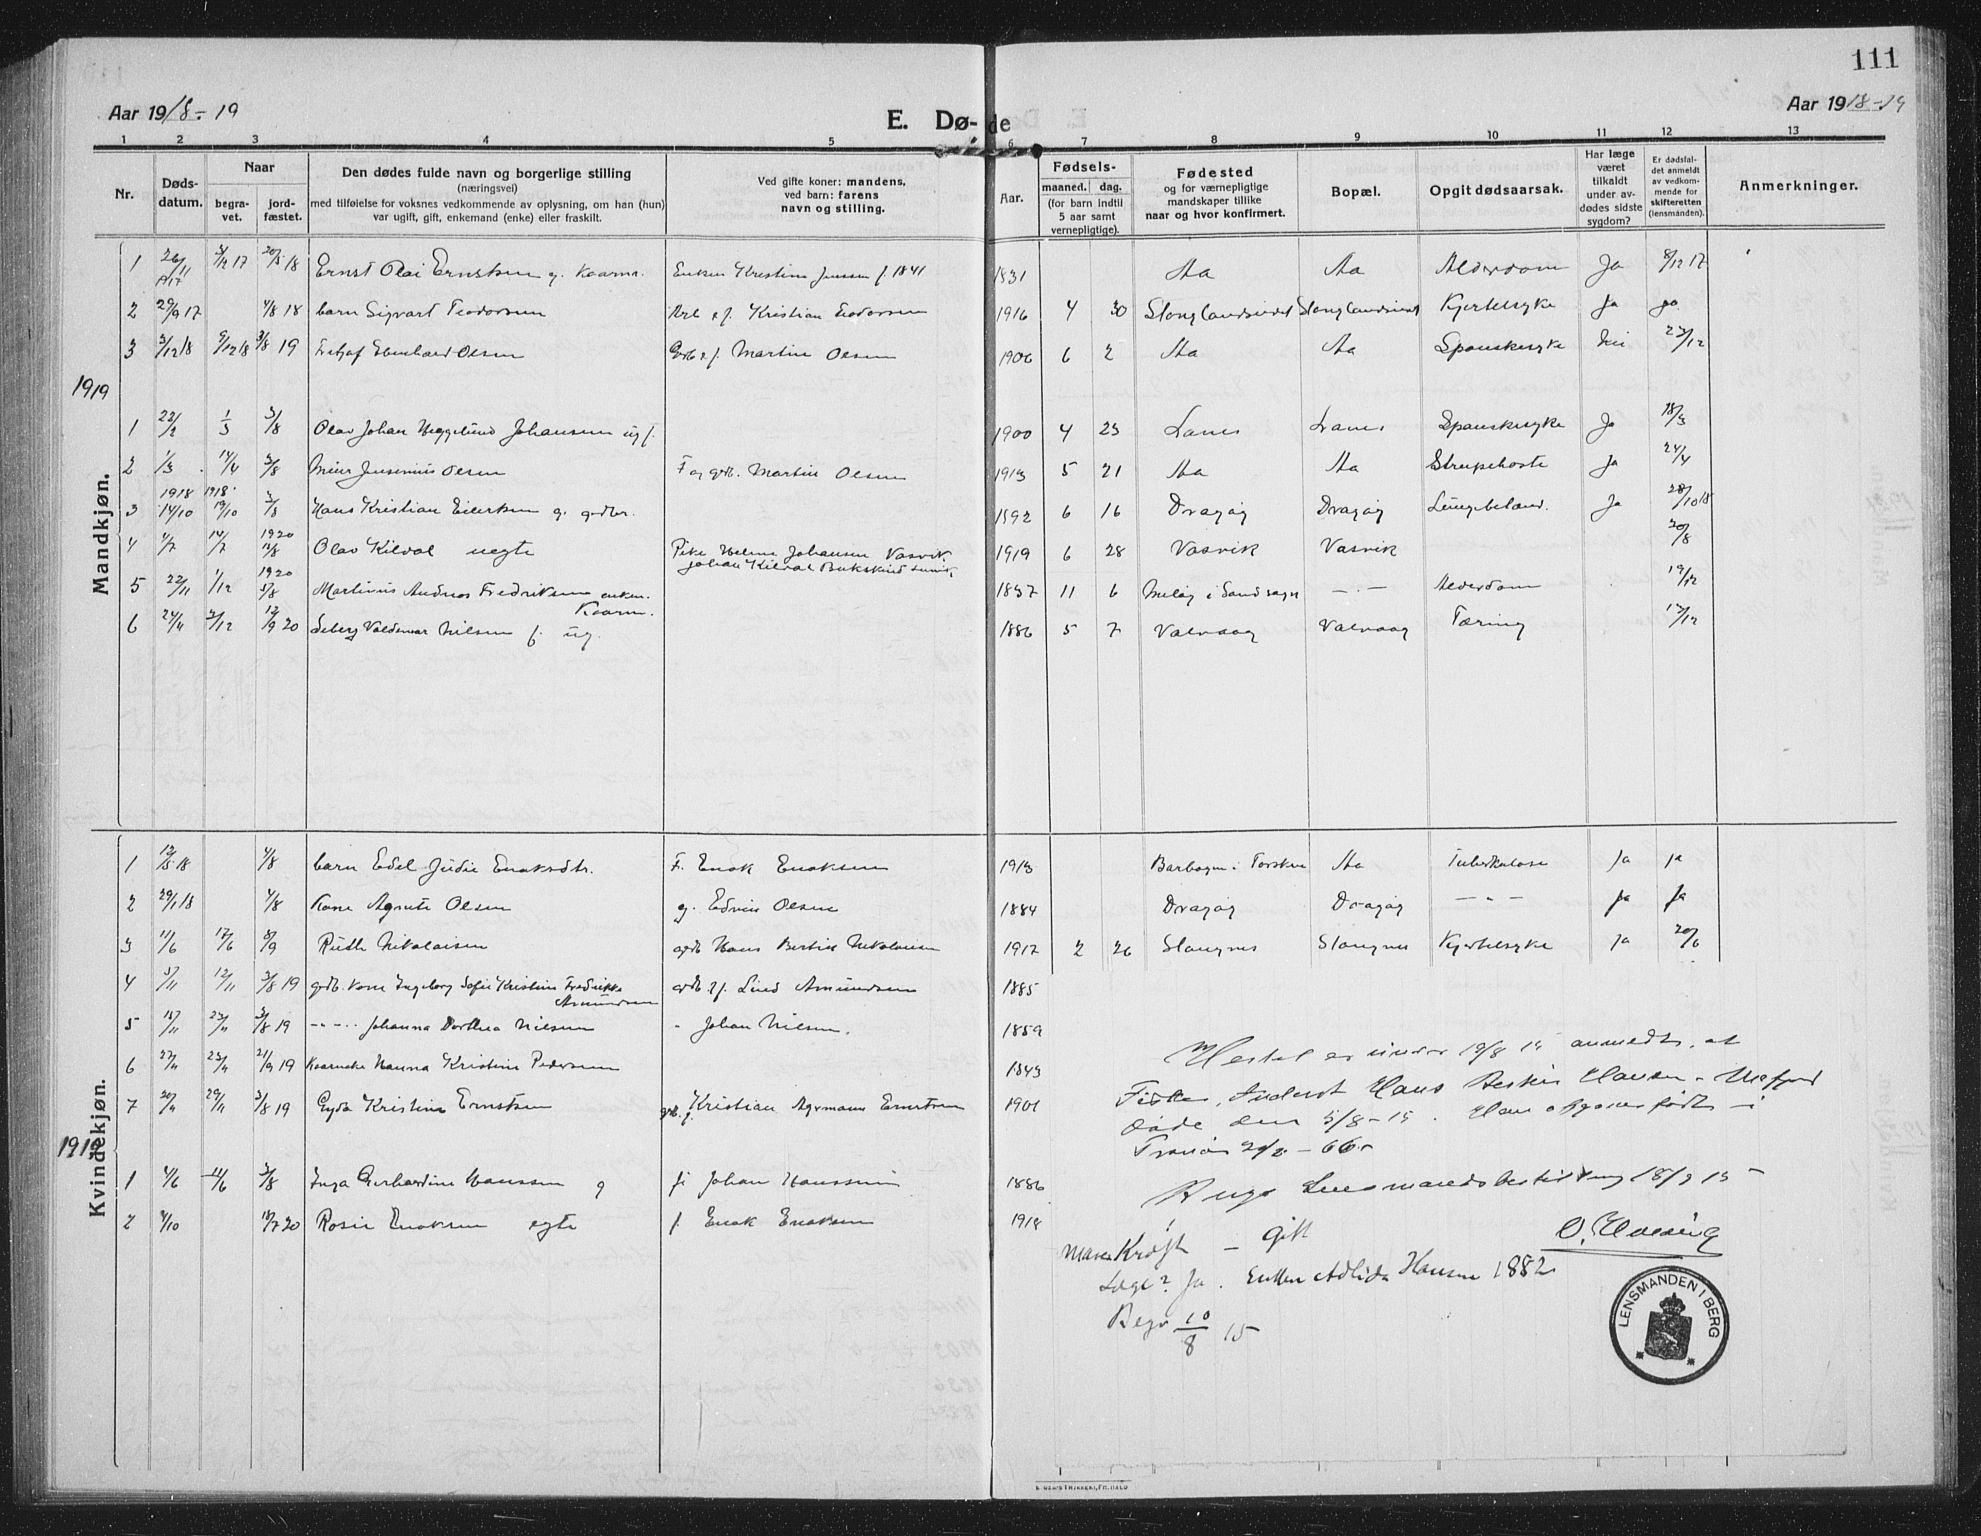 111
Aar 1918-19
E. Dø-de
Aar 1918-19
1 2 3 4 5 6 7 8 9 10 11 12 13
Nr.
Døds-datum.
Naar
begra-vet.
jord-fæstet.
Den dødes fulde navn og borgerlige stilling
(næringsvei)
med tilføielse for voksnes vedkommende av oplysning, om han (hun)
var ugift, gift, enkemand (enke) eller fraskilt.
Ved gifte koner: mandens,
ved barn: farens
navn og stilling.
Aar.
Fødsels-
maaned. dag.
(for barn indtil
5 aar samt
vernepligtige).
Fødested
og for værnepligtige
mandskaper tillike
naar og hvor konfirmert.
Bopæl.
Opgit dødsaarsak.
Har læge
været
tilkaldt
under av-
dødes sidste
sygdom?
Er dødsfal-
det anmeldt
av vedkom-
mende for
skifteretten
(lensmanden).
Anmerkninger.
Mandkjøn.
1 26/11 1917 4/12 17 20/5 18 Ernst Olai Ernstsen g. Kaarm. Enken Kristine Jensen f. 1841 1831 Aa Aa Alderdom Ja 8/12 17
2 29/9 17 4/8 18 barn Sigvart Teodorsen Kristian Teodorsen 1916 4 30 Stonglandseidet Stonglandseidet Kjertelsyke Ja Ja
3 3/12 18 9/12 18 3/8 19 Olsen Martin Olsen 1906 6 2 Aa Aa Spanskesyke Nei 23/12
1919
1 22/2 1/3 3/8 Olav Johan Heggelund Johansen ug f. 1900 4 23 Lanes Lanes Spanskesyke Ja 18/3
2 1/3 14/4 3/8 Olsen F og grdb. Martin Olsen 1913 5 21 Aa Aa Strupehoste Ja 24/4
3 1918 14/10 1918 19/10 3/8 Hans Kristian Eilertsen g. grdbr. 1892 6 16 Dragøy Dragøy Lungebetænd. Ja 28/10 18
4 4/7 14/7 1920 Olav Kilval uegte Pike Helene Johansen Vasvik, 1919 6 28 Vasvik Vasvik 20/8
Johan Kilval
5 22/11 1/12 1920 5/8 Martinus Andreas Fredriksen enkem. Kaarm. 1837 11 6 Meløy i Sandsogn -"- Alderdom 19/12
6 24/11 3/12 20 Seberg Valdemar Nilsen f. ug. 1886 5 7 Valvaag Valvaag Tæring 13/12
Kvindekjøn.
1 18 4/8 barn Edel Judie Enoksdtr. F. Enok Enoksen 1913 i Torsken Aa Tuberkulose Ja Ja
2 29/1 18 4/8 Kone Agnete Olsen g. Edvin Olsen 1884 Dragøy Dragøy -"- Ja Ja
3 11/6 17/6 8/9 Ruth Nikolaisen grdb Hans Bertin Nikolaisen 1917 2 26 Stangnes Stangnes Kjertelsyke Ja 20/6
4 5/11 12/11 3/8 19 grdb. kone Ingeborg Sofie Kristine Fredrikke Amundsen grdb. f. Amundsen 1885
5 15/11 23/11 3/8 19 Johanna Dorthea Nilsen " Johan Nilsen. 1859
6 23/11 21/9 19 Hanna Kristine Pedersen 1843
7 29/11 3/8 19 Gyda Kristine Ernstsen grdb. f. Kristian Agrmann Ernstsen 1901
1919
1 4/6 11/6 3/8 Inga Gerhardine Hanssen g f. Johan Hanssen 1886
2 4/10 20 Rosie Enoksen egte f. Enok Enoksen 1918
Hertil er under 19/8 15 anmeldt, at
Fisker Hans Hansen Mefjord
døde den 5/8-15. Han opgives født i
Tranø 66.
Berg Lensmandsbestilling 18/9 15
Mave Kræft - Gift
Læge? Ja. Enken Adlida Hansen 1882
Begr 10/8 15
LENSMANDEN I BERG